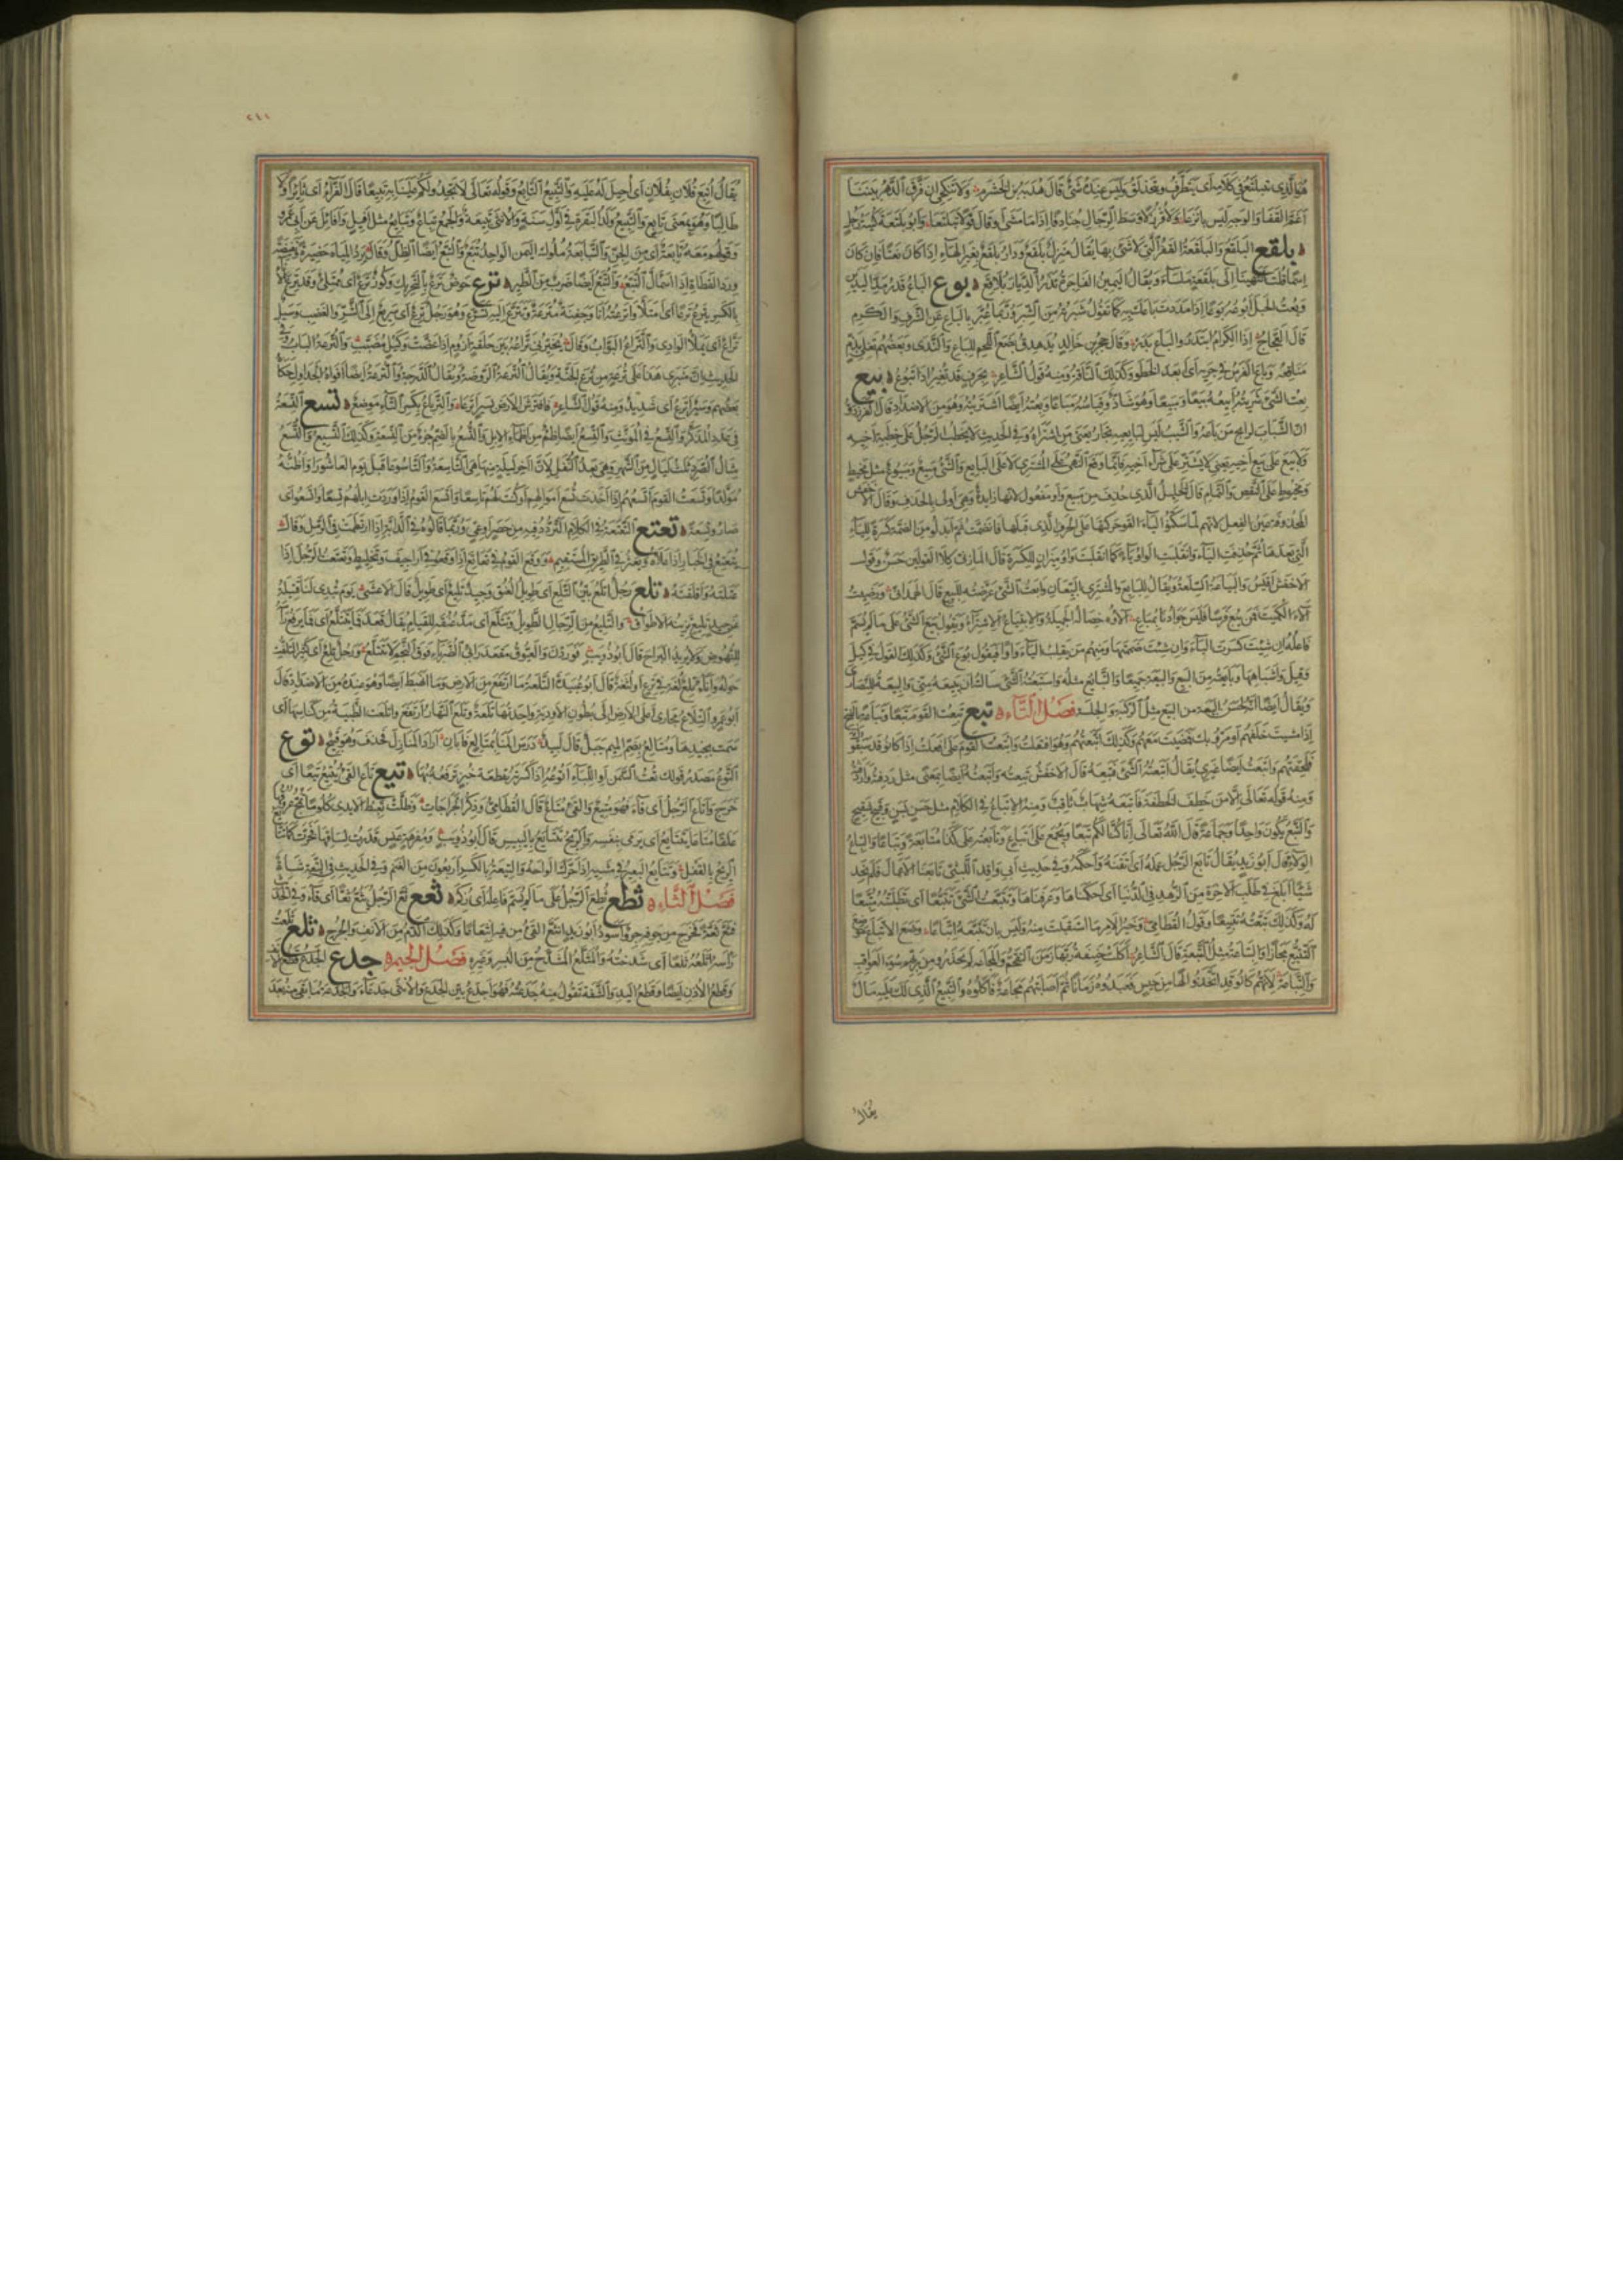 هو الذي يتبلتع في كلامه أي يتظرف ويتحذلق وليس عنده شئ قال هدبة بن الخشرم ولا تنكحي إن فرق الدهر بيننا
أغم القفا والوجه ليس بأنزعا ولا قرزلا وسط الرجال جنادفا إذا ما مشى أو قال قولا تبلتعا وأبو بلتعة كنية رجل
بلقع البلقع والبلقعة الأرض القفر التي لا شئ بها يقال منزل بلقع ودار بلقع بغير الهاء إذا كان نعتا فإن كان
اسما قلت انتهينا إلى بلقعة ملساء ويقال اليمين الفاجرة تذر الديار بلاقع بوع الباع قدر مد اليدين
وبعت الحبل أبوعه بوعا إذا مددت باعك به كما تقول شبرته من الشبر وربما عبر بالباع عن الشرف والكرم
قال العجاج إذا الكرام ابتدروا الباع بدر وقال حجر بن خالد يدهدق بضع اللحم للباع والندى وبعضهم تغلي بذم
مناقعه وباع الفرس في جريه أي أبعد الخطو وكذلك الناقة ومنه قول الشاعر بحرف قد تغير إذا تبوع بيع
بعت الشئ شريته أبيعه بيعا ومبيعا وهو شاذ وقياسه مباعا وبعته أيضا اشتريته وهو من الأضداد قال الفرزدق
إن الشباب لرابح من باعه والشيب ليس لبائعيه تجار يعني من اشتراه وفي الحديث لا يخطب الرجل على خطبة أخيه
ولا يبع على بيع أخيه يعني لا يشتر على شراء أخيه فإنما وقع النهي على المشتري لا على البائع والشئ مبيع ومبيوع مثل مخيط
ومخيوط على النقص والتمام قال الخليل الذي حذف من مبيع واو مفعول لأنها زائدة وهي أولى بالحذف وقال الأخفش
المحذوفة عين الفعل لأنهم لما سكنوا الياء ألقوا حركتها على الحرف الذي قبلها فانضمت ثم أبدلوا من الضمة كسرة للياء
التي بعدها ثم حذفت الياء وانقلبت الواو ياء كما انقلبت واو ميزان للكسرة قال المازني كلا القولين حسن وقول
الأخفش أقيس والبياعة السلعة ويقال للبائع والمشتري البيعان وأبعت الشئ عرضته للبيع قال الهمداني ورضيت
آلاء الكميت فمن يبع فرسا فليس جوادنا بمباع آلاؤه خصاله الجميلة والابتياع الاشتراء وتقول بيع الشئ على ما لم يسم
فاعله إن شئت كسرت الباء وإن شئت ضممتها ومنهم من يقلب الياء واوا فيقول بوع الشئ وكذلك القول في كيل
وقيل وأشباهها وبايعته من البيع والبيعة جميعا والتبايع مثله واستبعته الشئ سألته أن يبيعه مني والبيعة للنصارى
ويقال أيضا إنه لحسن البيعة من البيع مثل الركبة والجلسة فصل التاء تبع تبعت القوم تبعا وتباعة بالفتح
إذا مشيت خلفهم أو مروا بك فمضيت معهم وكذلك اتبعتهم وهو افتعلت وأتبعت القوم على أفعلت إذا كانوا قد سبقوك
فلحقتهم وأتبعت أيضا غيري يقال أتبعته الشئ فتبعه قال الأخفش تبعته وأتبعته أيضا بمعنى مثل ردفته وأردفته
ومنه قوله تعالى إلا من خطف الخطفة فأتبعه شهاب ثاقب ومنه الإتباع في الكلام مثل حسن بسن وقبيح شقيح
والتبع يكون واحدا وجماعة قال الله تعالى إنا كنا لكم تبعا ويجمع على أتباع وتابعته على كذا متابعة وتباعا والتباع
الولاء قال أبو زيد يقال تابع الرجل عمله أي أتقنه وأحكمه وفي حديث أبي واقد الليثي تابعنا الأعمال فلم نجد
شيئا أبلغ في طلب الآخرة من الزهد في الدنيا أي أحكمناها وعرفناها وتتبعت الشئ تتبعا أي تطلبته متتبعا
له وكذلك تبعته تتبيعا وقول القطامي وخير الأمر ما استقبلت منه وليس بأن تتبعه اتباعا وضع الاتباع موضع
التتبع مجازا والتباعة مثل التبعة قال الشاعر أكلت حنيفة ربها زمن التقحم والمجاعة لم يحذروا من ربهم سوء العواقب
والتباعة لأنهم كانوا قد اتخذوا إلها من حيس فعبدوه زمانا ثم أصابتهم مجاعة فأكلوه والتبيع الذي لك عليه مال
يقال
٢١١
يقال أتبع فلان بفلان أي أحيل له عليه والتبيع التابع وقوله تعالى ثم لا تجدوا لكم علينا به تبيعا قال الفراء أي ثائرا ولا
طالبا وهو بمعنى تابع والتبيع ولد البقرة في أول سنة والأنثى تبيعة والجمع تباع وتبايع مثل أفيل وأفائل عن أبي عمرو
وقولهم معه تابعة أي من الجن والتبابعة ملوك اليمن الواحد تبع والتبع أيضا الظل وقال يرد المياه حضيرة ونفيضة
ورد القطاة إذا اسمأل التبع والتبع أيضا ضرب من الطير ترع حوض ترع بالتحريك وكوز ترع أي ممتلئ وقد ترع الإناء
بالكسر يترع ترعا أي امتلأ وأترعته أنا وجفنة مترعة وتترع إليه بالشر أي تسرع وهو رجل ترع أي سريع إلى الشر والغضب وسيل
تراع أي يملأ الوادي والتراع البواب وقال يخيرني تراعه بين حلقة أزوم إذا عضت وكبل مضبب والترعة الباب وفي
الحديث إن منبري هذا على ترعة من ترع الجنة ويقال الترعة الروضة ويقال الدرجة والترعة أيضا أفواه الجداول حكاه
بعضهم وسير أترع أي شديد ومنه قول الشاعر فافترش الأرض بسير أترعا والترياع بكسر التاء موضع تسع التسعة
في عدد المذكر والتسع في المؤنث والتسع أيضا ظمء من أظماء الإبل والتسع بالضم جزء من التسعة وكذلك التسيع والتسع
مثال الصرد ثلاث ليال من الشهر وهي بعد النفل لأن آخر ليلة منها هي التاسعة والتاسوعاء قبل يوم العاشوراء وأظنه
مولدا وتسعت القوم أتسعهم إذا أخذت تسع أموالهم أو كنت لهم تاسعا وأتسع القوم إذا وردت إبلهم تسعا وأتسعوا أي
صاروا تسعة تعتع التعتعة في الكلام التردد فيه من حصر أو عي وربما قالوه في الدابة إذا ارتطمت في الرمل وقال
يتعتع في الخبار إذا علاه ويعثر في الطريق المستقيم ووقع القوم في تعاتع إذا وقعوا في أراجيف وتخليط وتعتعت الرجل إذا
عتلته وأقلقته تلع رجل أتلع بين التلع أي طويل العنق وجيد تليع أي طويل قال الأعشى يوم تبدي لنا قتيلة
عن جيد تليع تزينه الأطواق والتليع من الرجال الطويل وتتلع أي مد عنقه للقيام يقال قعد فما يتتلع أي فما يرفع رأسه
للنهوض ولا يريد البراح قال أبو ذؤيب فوردن والعيوق مقعد رابئ الضرباء فوق النجم لا يتتلع ورجل تلع أي كثير التلفت
حوله وإناء تلع لغة في ترع أو لثغة قال أبو عبيدة التلعة ما ارتفع من الأرض وما انهبط أيضا وهو عنده من الأضداد وقال
أبو عمرو التلاع مجاري أعلى الأرض إلى بطون الأودية واحدتها تلعة وتلع النهار ارتفع وأتلعت الظبية من كناسها أي
سمت بجيدها ومتالع بضم الميم جبل قال لبيد درس المنا بمتالع فأبان أراد المنازل فحذف وهو قبيح توع
التوع مصدر قولك تعت السمن أو اللبأ أتوعه إذا كسرته بقطعة خبز ترفعه بها تيع تاع القئ يتيع تيعا أي
خرج وأتاع الرجل أي قاء فهو متيع والقئ متاع قال القطامي وذكر الجراحات وظلت تعبط الأيدي كلوما تمج عروقها
علقا متاعا يتتايع أي يرمي بنفسه والريح تتتايع باليبيس قال أبو ذؤيب ومفرهة عنس قدرت لساقها فخرت كما تتايع
الريح بالقفل وتتايع البعير في مشيه إذا حرك ألواحه والتيعة بالكسر أربعون من الغنم وفي الحديث في التيعة شاة
فصل الثاء ثطع ثطع الرجل على ما لم يسم فاعله أي زكم ثعع ثع الرجل يثع ثعا أي قاء وفي الحديث
فثع ثعة فخرج من جوفه جرو أسود أبو زيد انثع القئ من فيه انثعاعا وكذلك الدم من الأنف والجرح ثلغ ثلغت
رأسه أثلغه ثلغا أي شدخته والمثلغ المشدخ من البسر وغيره فصل الجيم جدع الجدع قطع الأنف
وقطع الأذن أيضا وقطع اليد والشفة تقول منه جدعته فهو أجدع بين الجدع والأنثى جدعاء والجدعة ما بقي منه بعد